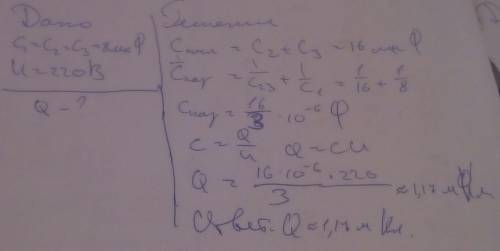 Дано
C₁=C₂=C₃=8мкФ
U=220В
Q-?
Решение
= C₂+C₃ = 16 мкФ
1/C = 1/C₂₃ + 1/C₁ = 1/16 + 1/8
= 16/3 · 10⁻⁶ Ф
C = Q/U Q=CU
Q = 16·10⁻⁶·220/3 ≈ 1,17 м Кл
Ответ: Q ≈ 1,17 м Кл.